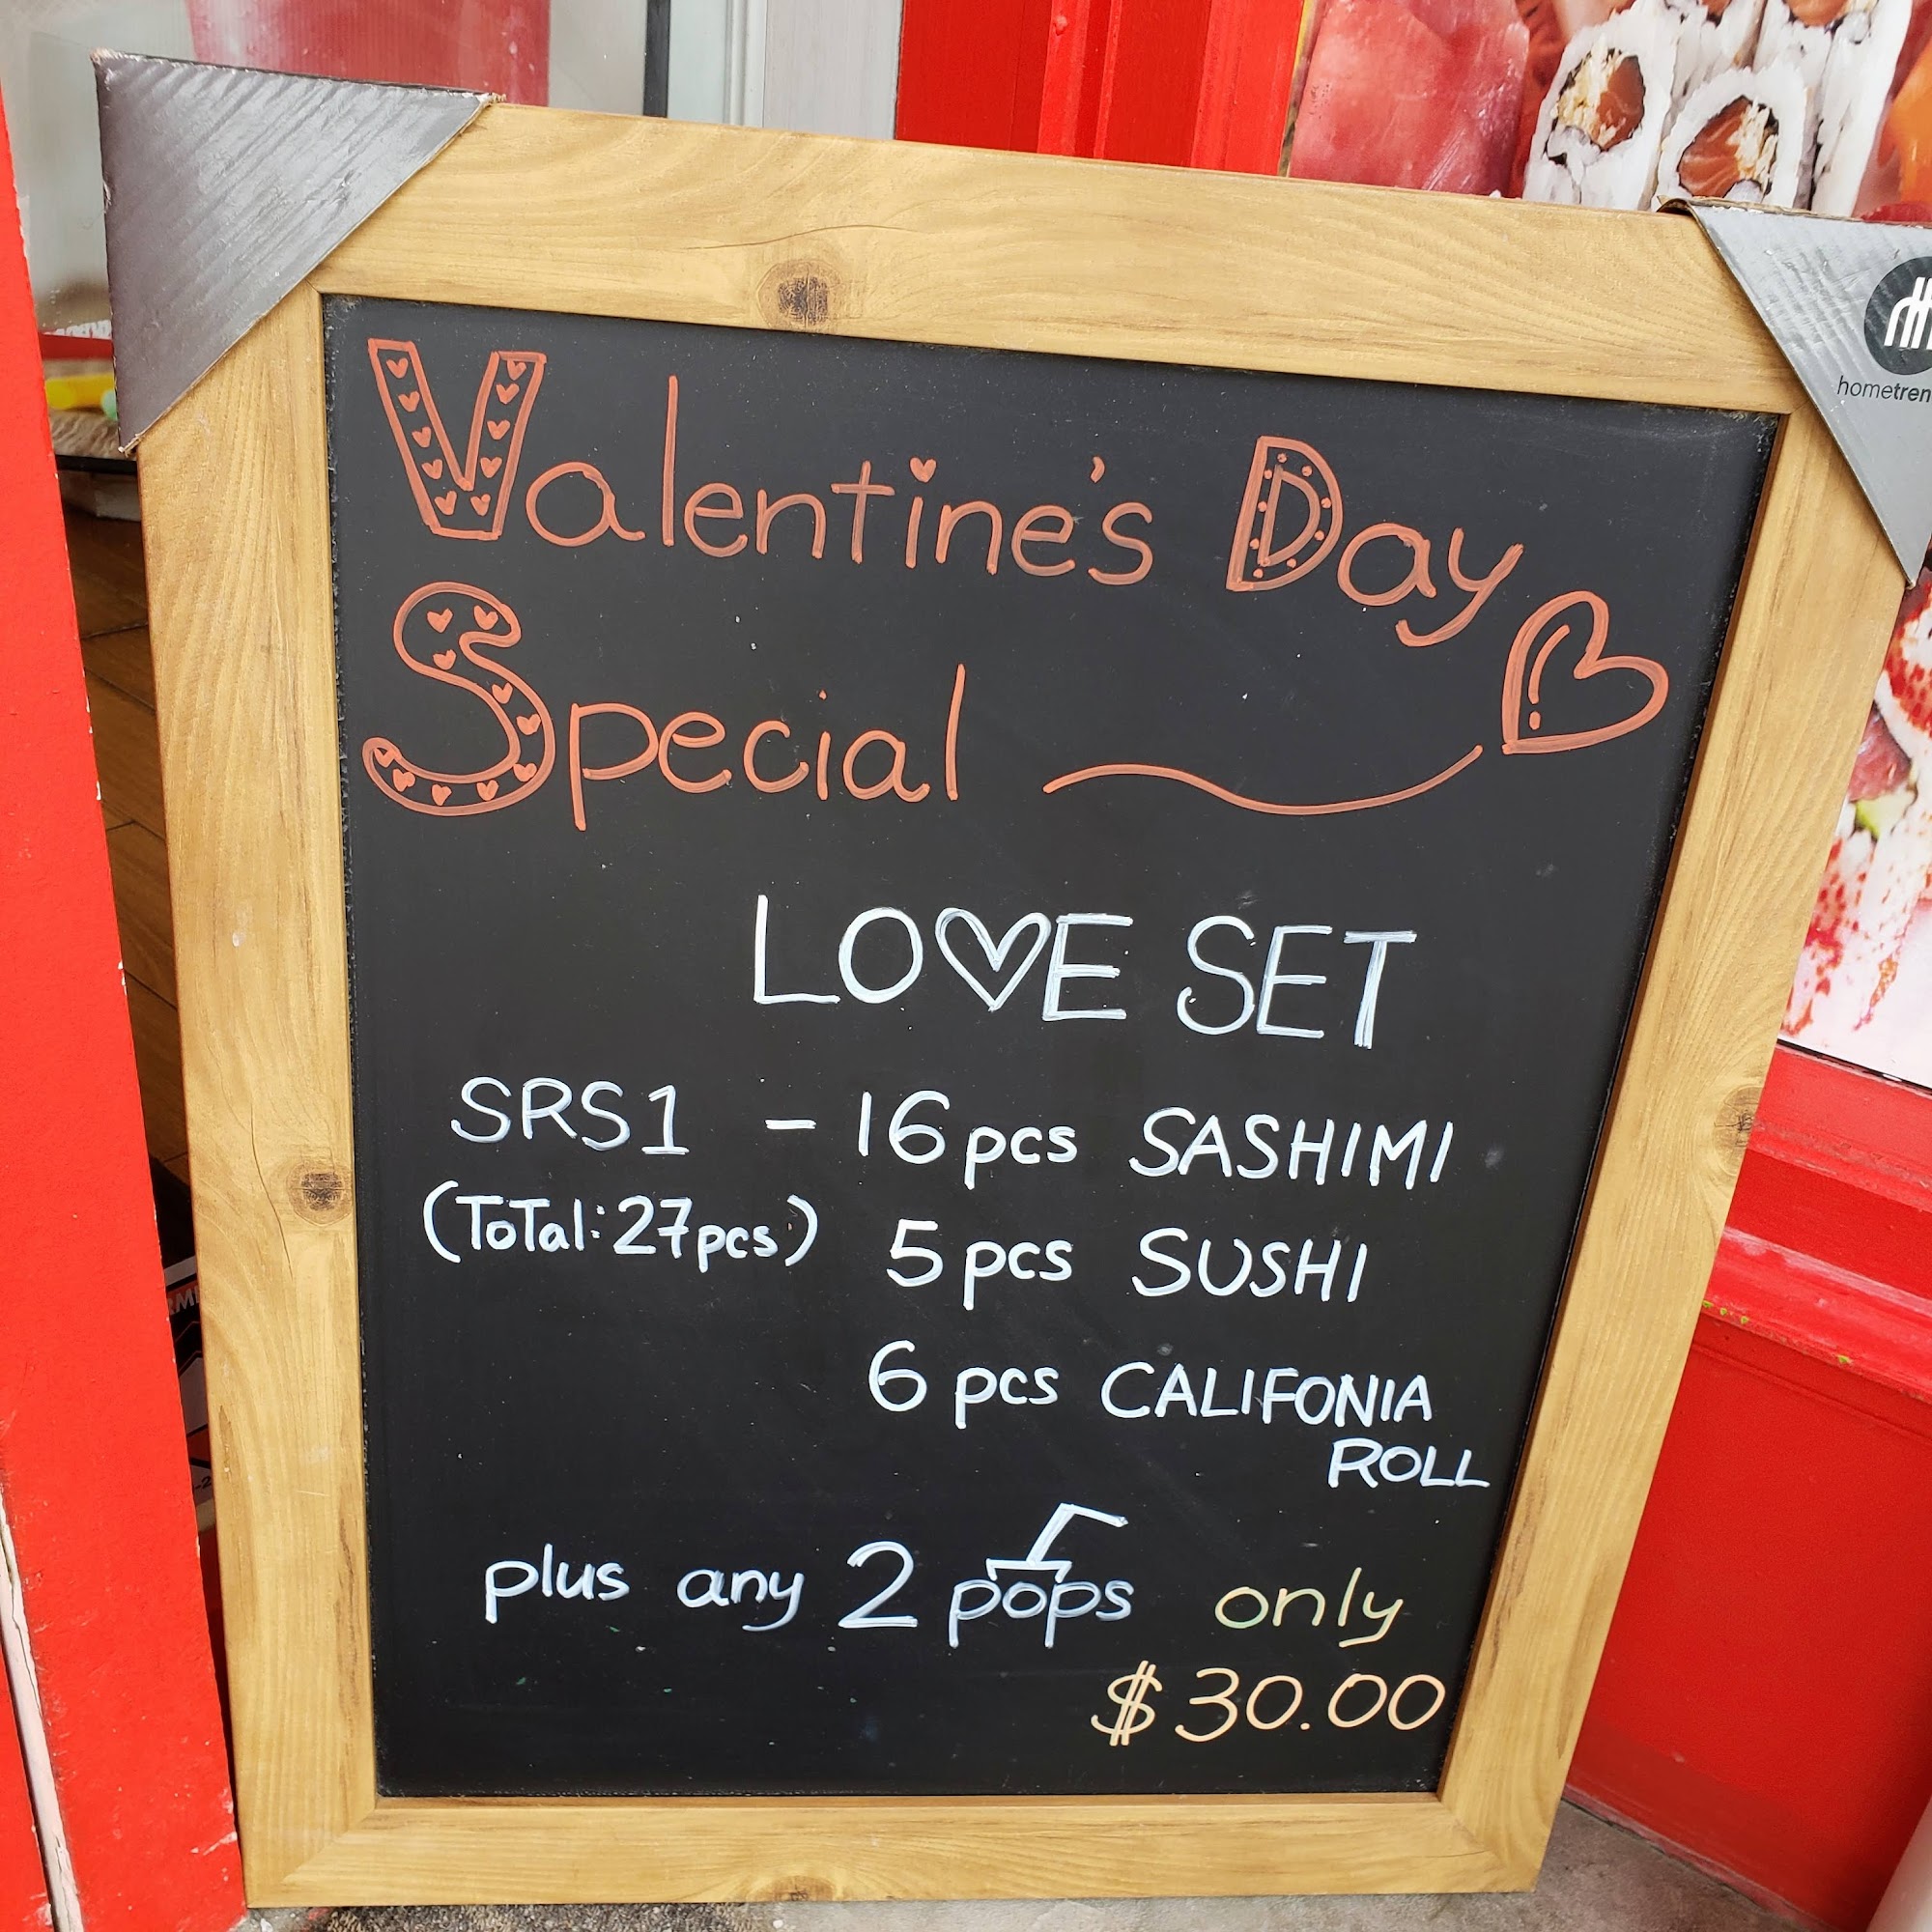 Valentine's Day
Special
LO♡E SET
SRS1 - 16 pcs SASHIMI
(ToTal: 27pcs) 5 pcs SUSHI
6 pcs CALIFONIA
ROLL
plus any 2 pops only
$30.00